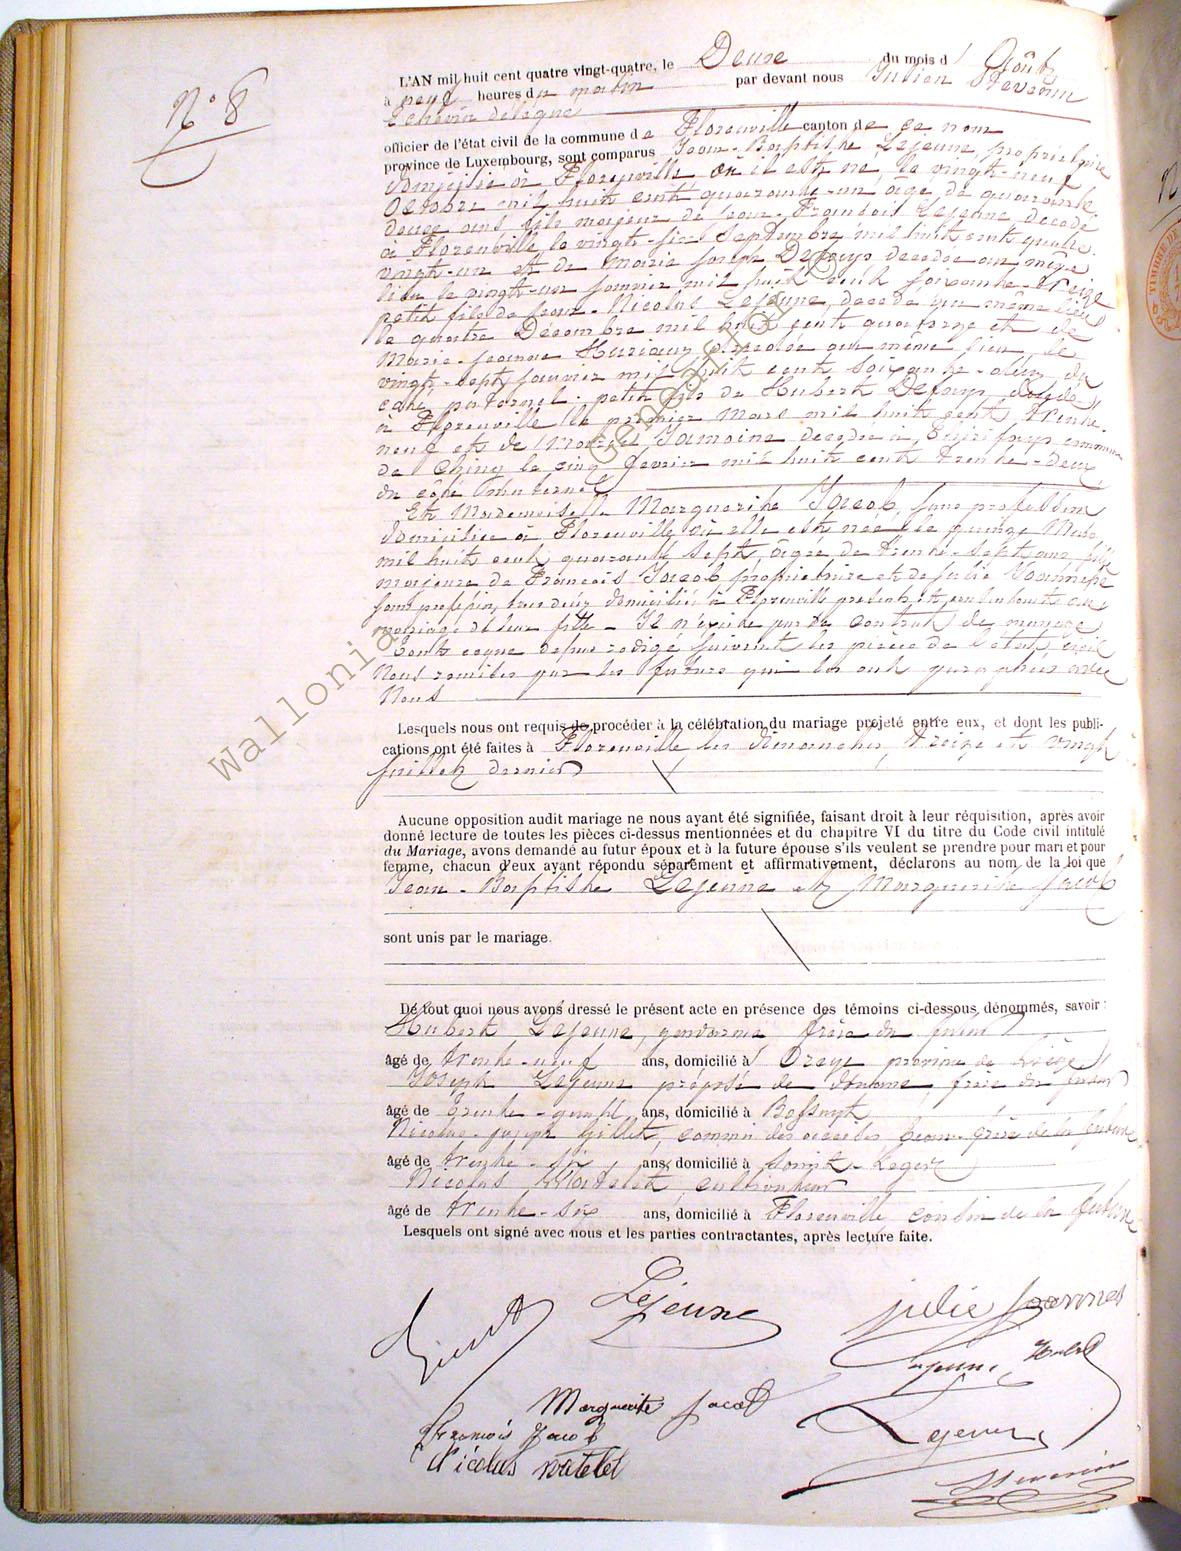 N° 8
L'AN mil huit cent quatre vingt-quatre, le Deuxe du mois d'Août
à neuf heures du matin par devant nous Julien Stevenin
Echevin délégué
officier de l'état civil de la commune de Florenville canton de ce nom
province de Luxembourg, sont comparus Jean-Baptiste Lejeune, propriétaire
domicilié à Florenville où il est né, le vingt-neuf
Octobre mil huit cent quarante-un âgé de quarante
deux ans fils majeur de Jean-François Lejeune décédé
à Florenville le vingt-six Septembre mil huit cent quatre
vingt-un et de Marie Joseph Defays décédée au même
lieu le vingt-un Janvier mil huit cent soixante-treize
petit fils de Jean-Nicolas Lejeune, décédé au même lieu
le quatre Décembre mil huit cent quatorze et de
Marie-Jeanne décédée au même lieu, le
vingt-sept Janvier mil huit cent soixante-deux du
côté paternel. petit fils de Hubert Defays, décédé
à Florenville le premier Mars mil huit cent trente
neuf et de Jamoine décédée à commune
de Chiny le cinq février mil huit cent trente-deux
du côté maternel
Et Mademoiselle Marguerite Jacob, sans profession
domiciliée à Florenville où elle est née le quinze Mars
mil huit cent quarante sept, âgée de trente-sept ans, fille
majeure de François Jacob propriétaire et de Julie Joannes
sans profession, tous deux domiciliés à Florenville présents et consentants au
mariage de leur fille - Il n'existe pas de contrat de mariage
rédigé suivant les pièces de l'état civil
nous remises par les futurs qui les ont paraphées avec
nous
Lesquels nous ont requis de procéder à la célébration du mariage projeté entre eux, et dont les publi-
cations ont été faites à Florenville les dimanches, treize et vingt
juillet dernier
Aucune opposition audit mariage ne nous ayant été signifiée, faisant droit à leur réquisition, après avoir
donné lecture de toutes les pièces ci-dessus mentionnées et du chapitre VI du titre du Code civil intitulé
du Mariage, avons demandé au futur époux et à la future épouse s'ils veulent se prendre pour mari et pour
femme, chacun d'eux ayant répondu séparément et affirmativement, déclarons au nom de la loi que
Jean-Baptiste Lejeune et Marguerite Jacob
sont unis par le mariage.
De tout quoi nous avons dressé le présent acte en présence des témoins ci-dessous dénommés, savoir :
Hubert Lejeune, gendarme frère du futur
âgé de trente-neuf ans, domicilié à Oreye province de Liège
Joseph Lejeune préposé de douane, frère du futur
âgé de trente-quatre ans, domicilié à
Nicolas-Joseph Gillet, commis des accises beau-frère de la future
âgé de trente-six ans, domicilié à Saint-Léger
Nicolas Watelet cultivateur
âgé de trente-six ans, domicilié à Florenville cousin de la future
Lesquels ont signé avec nous et les parties contractantes, après lecture faite.
Lejeune
Julie Joannes
Lejeune Hubert
Marguerite Jacob
François Jacob
Lejeune
Nicolas Watelet
Stevenin
Wallonia Genealogie ©
N
TIMBRE DE